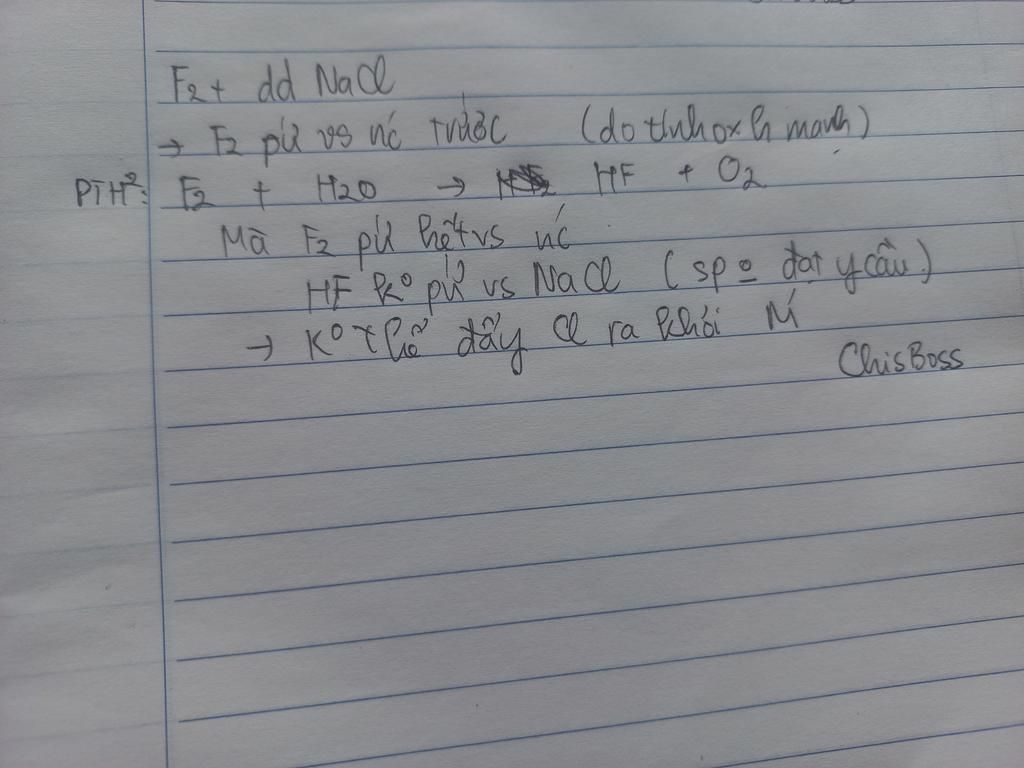 F2 + dd NaCl
→ F2 pứ vs nc trước (do tính oxh mạnh)
PTH²: F2 + H2O → HF + O2
Mà F2 pứ hết vs nc
HF k° pứ vs NaCl (sp º đạt y cầu)
→ K° thể đẩy Cl ra khỏi M
ChisBoss